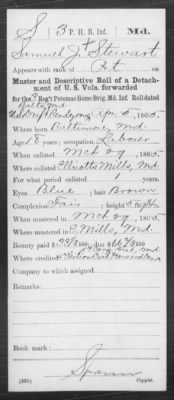 S 3 P. H. B. Inf. Md.
Samuel J Stewart
Appears with rank of Pvt on
Muster and Descriptive Roll of a Detach-
ment of U. S. Vols. forwarded
for the 3 Reg't Potomac Home Brig. Md. Inf. Roll dated
Balto Md
Apr 5, 1865.
Where born Baltimore, Md.
Age 18 y'rs; occupation Laborer
When enlisted Mch 29, 1865.
Where enlisted Ellicotts Mills, Md.
For what period enlisted 1 years.
Eyes Blue; hair Brown
Complexion Fair; height
When mustered in Mch 29, 1865.
Where mustered in E Mills, Md.
Bounty paid $ 100; due $ 100
Where credited
Company to which assigned
Remarks:
Book mark:
Spann
Copyist.